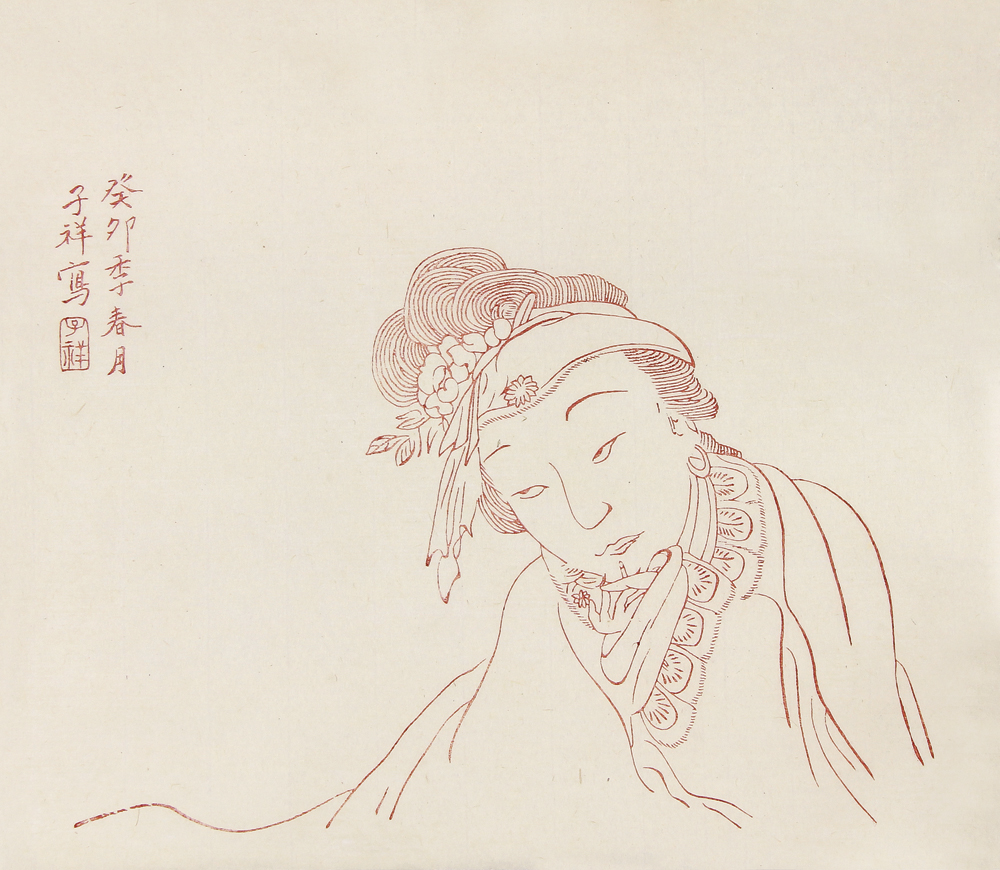 癸卯季春月
子祥寫
子祥